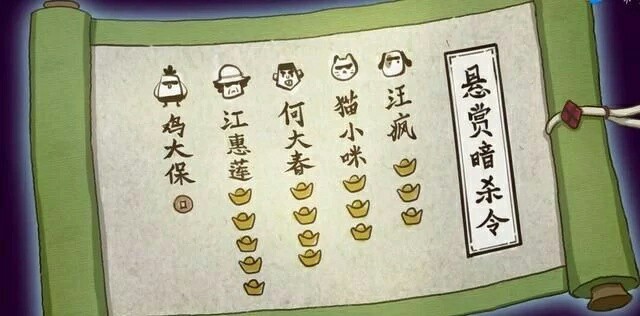 悬赏暗杀令
汪疯
猫小咪
何大春
江惠莲
鸡大保